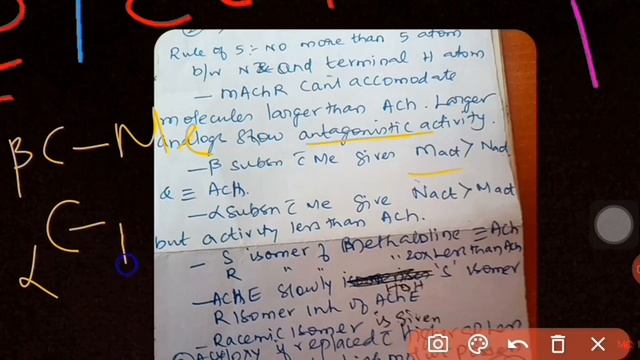 Rule of 5:- No more than 5 atom
b/w N and terminal H atom
- mAchR can't accomodate
molecules larger than Ach. Larger
analogs show antagonistic activity.
- β subsn c̄ Me gives Mact > Nact
& ≡ Ach.
- α subsn c̄ Me give Nact > Mact
but activity less than Ach.
- S isomer of Methacholine ≡ Ach
R " " " 20x less than Ach
- AChE slowly 'S' isomer
R isomer inh of AChE
- Racemic isomer is given
replaced c̄
β C - Me
α C -